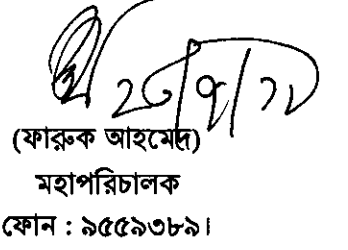 (ফারুক আহমেদ)
মহাপরিচালক
ফোন : ৯৫৫৯৩৮৯।